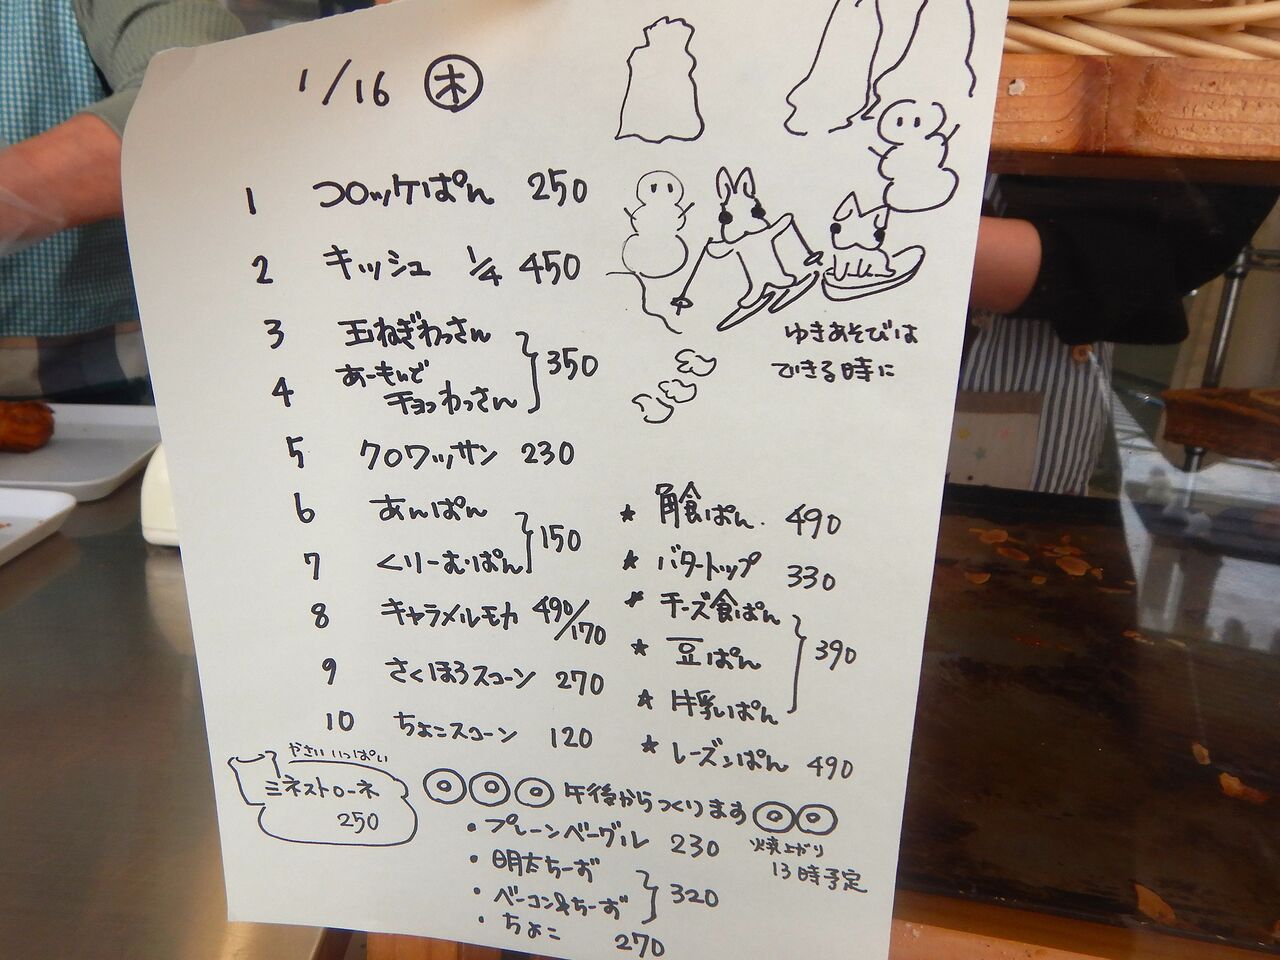 1/16 木
1 コロッケぱん 250
2 キッシュ 1/4 450
3 玉ねぎわっさん
4 あーもんど
チョコわっさん
350
5 クロワッサン 230
6 あんぱん
7 くりーむぱん
150
8 キャラメルモカ 490/170
9 さくほろスコーン 270
10 ちょこスコーン 120
ゆきあそびは
できる時に
★ 角食ぱん 490
★ バタートップ 330
★ チーズ食ぱん
★ 豆ぱん
★ 牛乳ぱん
390
★ レーズンぱん 490
やさいいっぱい
ミネストローネ
250
午後からつくります
焼上がり
13時予定
・プレーンベーグル 230
・明太ちーず
・ベーコン&ちーず
320
・ちょこ 270